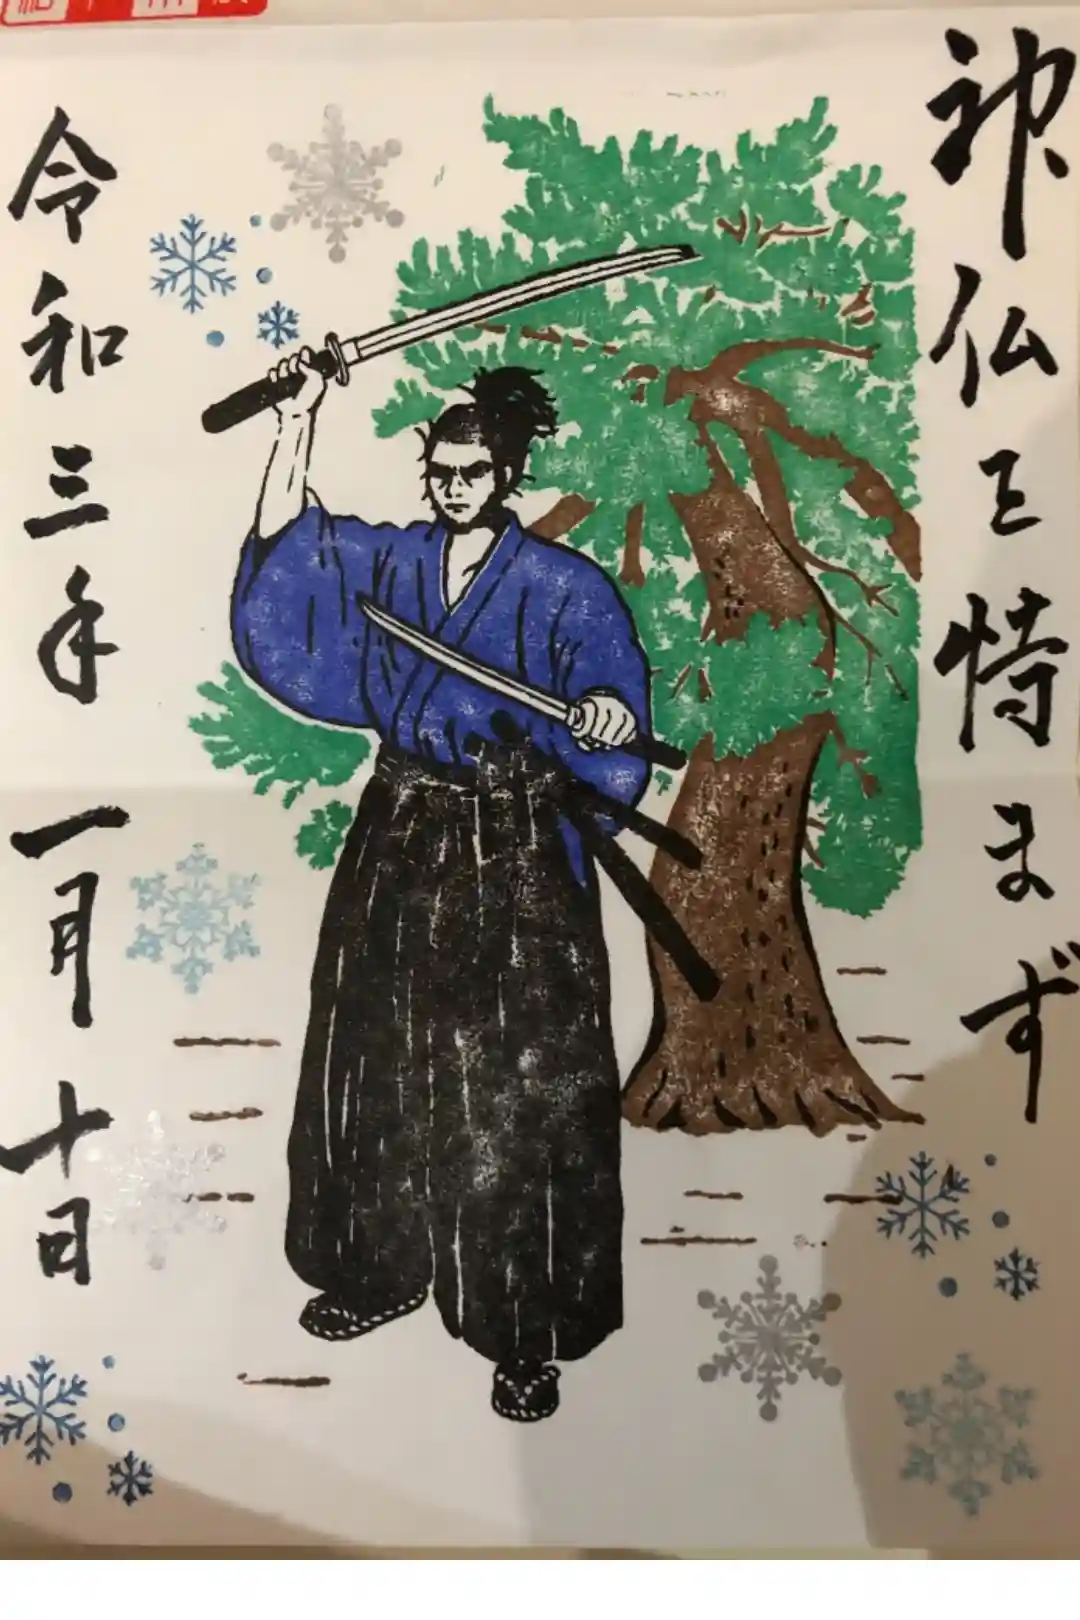 神仏を恃まず
令和三年 一月十日